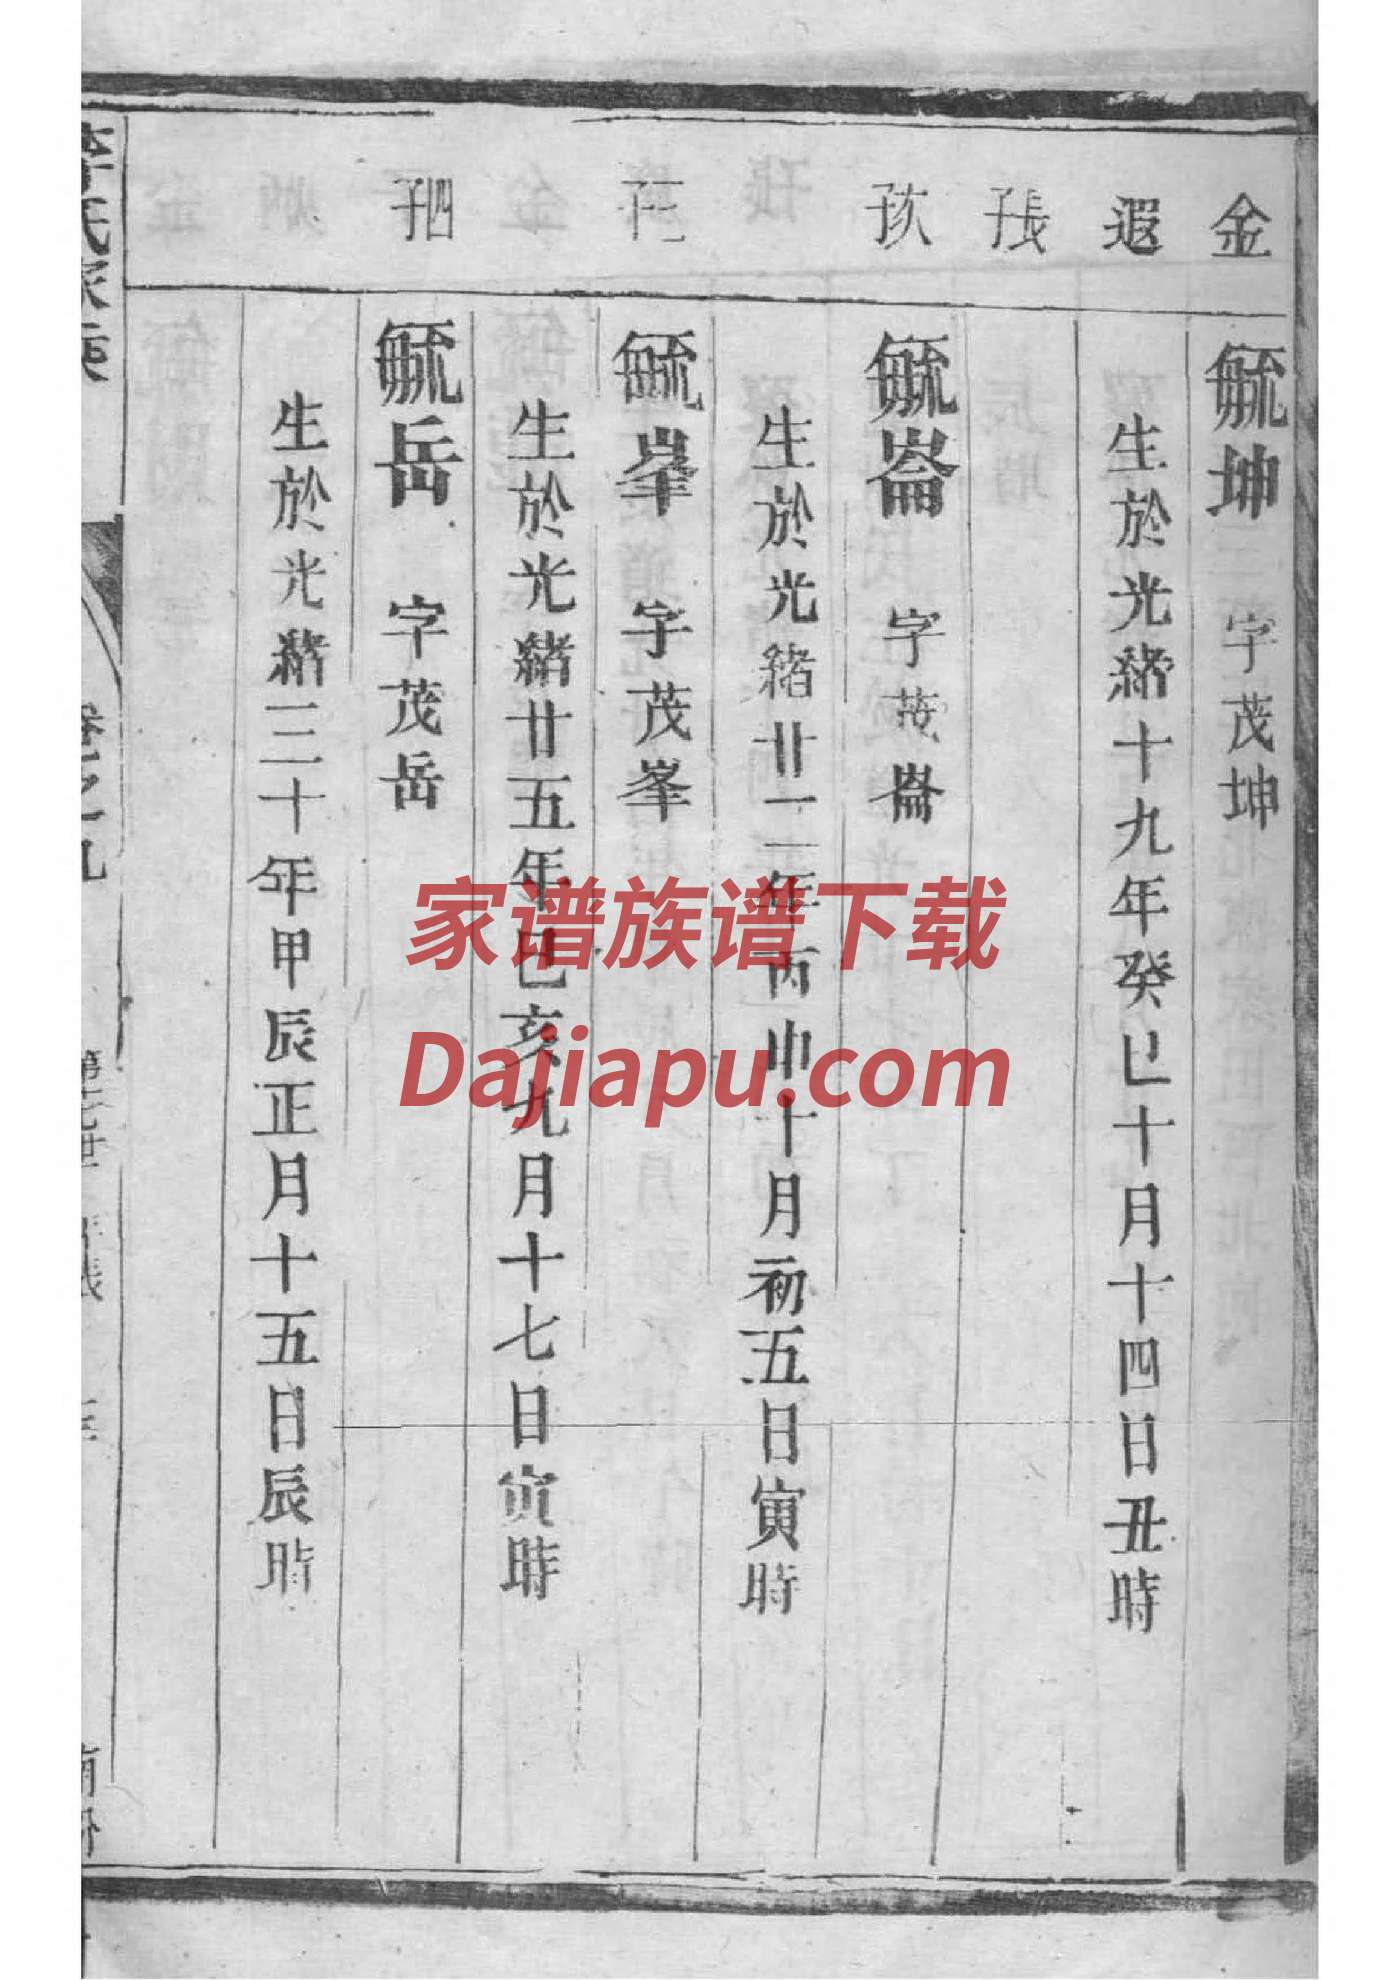 金
遐
子長
子次
子二
子四
毓坤 字茂坤
生於光緒十九年癸巳十月十四日丑時
毓崙 字茂崙
生於光緒廿二年丙申十月初五日寅時
毓峯 字茂峯
生於光緒廿五年己亥九月十七日寅時
毓岳 字茂岳
生於光緒三十年甲辰正月十五日辰時
李氏家乘
卷之九
家谱族谱下载
Dajiapu.com